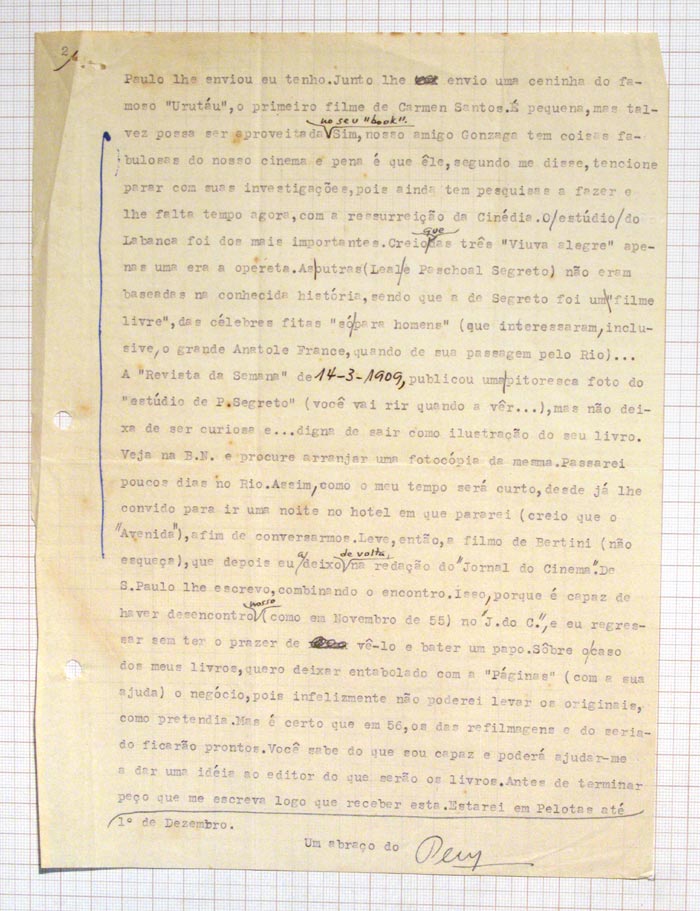 2
Paulo lhe enviou eu tenho.Junto lhe envio uma ceninha do fa-
moso "Urutáu",o primeiro filme de Carmen Santos.É pequena,mas tal-
no seu "book".
vez possa ser aproveitada Sim,nosso amigo Gonzaga tem coisas fa-
bulosas do nosso cinema e pena é que êle,segundo me disse,tencione
parar com suas investigações,pois ainda tem pesquisas a fazer e
lhe falta tempo agora,com a ressurreição da Cinédia.O/estúdio/do
que
Labanca foi dos mais importantes.Creio das três "Viuva alegre" ape-
nas uma era a opereta. As/outras(Leal/e Paschoal Segreto) não eram
baseadas na conhecida história,sendo que a de Segreto foi um/"filme
livre",das célebres fitas "só/para homens" (que interessaram,inclu-
sive,o grande Anatole France,quando de sua passagem pelo Rio)...
A "Revista da Semana" de 14-3-1909,publicou uma/pitoresca foto do
"estúdio de P.Segreto" (você vai rir quando a vêr...),mas não dei-
xa de ser curiosa e...digna de sair como ilustração do seu livro.
Veja na B.N. e procure arranjar uma fotocópia da mesma.Passarei
poucos dias no Rio.Assim,como o meu tempo será curto,desde já lhe
convido para ir uma noite no hotel em que pararei (creio que o
"Avenida"),afim de conversarmos.Leve,então,a filmo de Bertini (não
a de volta,
esqueça),que depois eu deixo na redação do "Jornal do Cinema".De
S.Paulo lhe escrevo,combinando o encontro.Isso,porque é capaz de
nosso
haver desencontro (como em Novembro de 55) no "J.do C.",e eu regres-
sar sem ter o prazer de vê-lo e bater um papo.Sôbre o/caso
dos meus livros,quero deixar entabolado com a "Páginas" (com a sua
ajuda) o negócio,pois infelizmente não poderei levar os originais,
como pretendia.Mas é certo que em 56,os das refilmagens e do seria-
do ficarão prontos.Você sabe do que sou capaz e poderá ajudar-me
a dar uma idéia ao editor do que serão os livros.Antes de terminar
peço que me escreva logo que receber esta.Estarei em Pelotas até
1º de Dezembro.
Um abraço do Pery